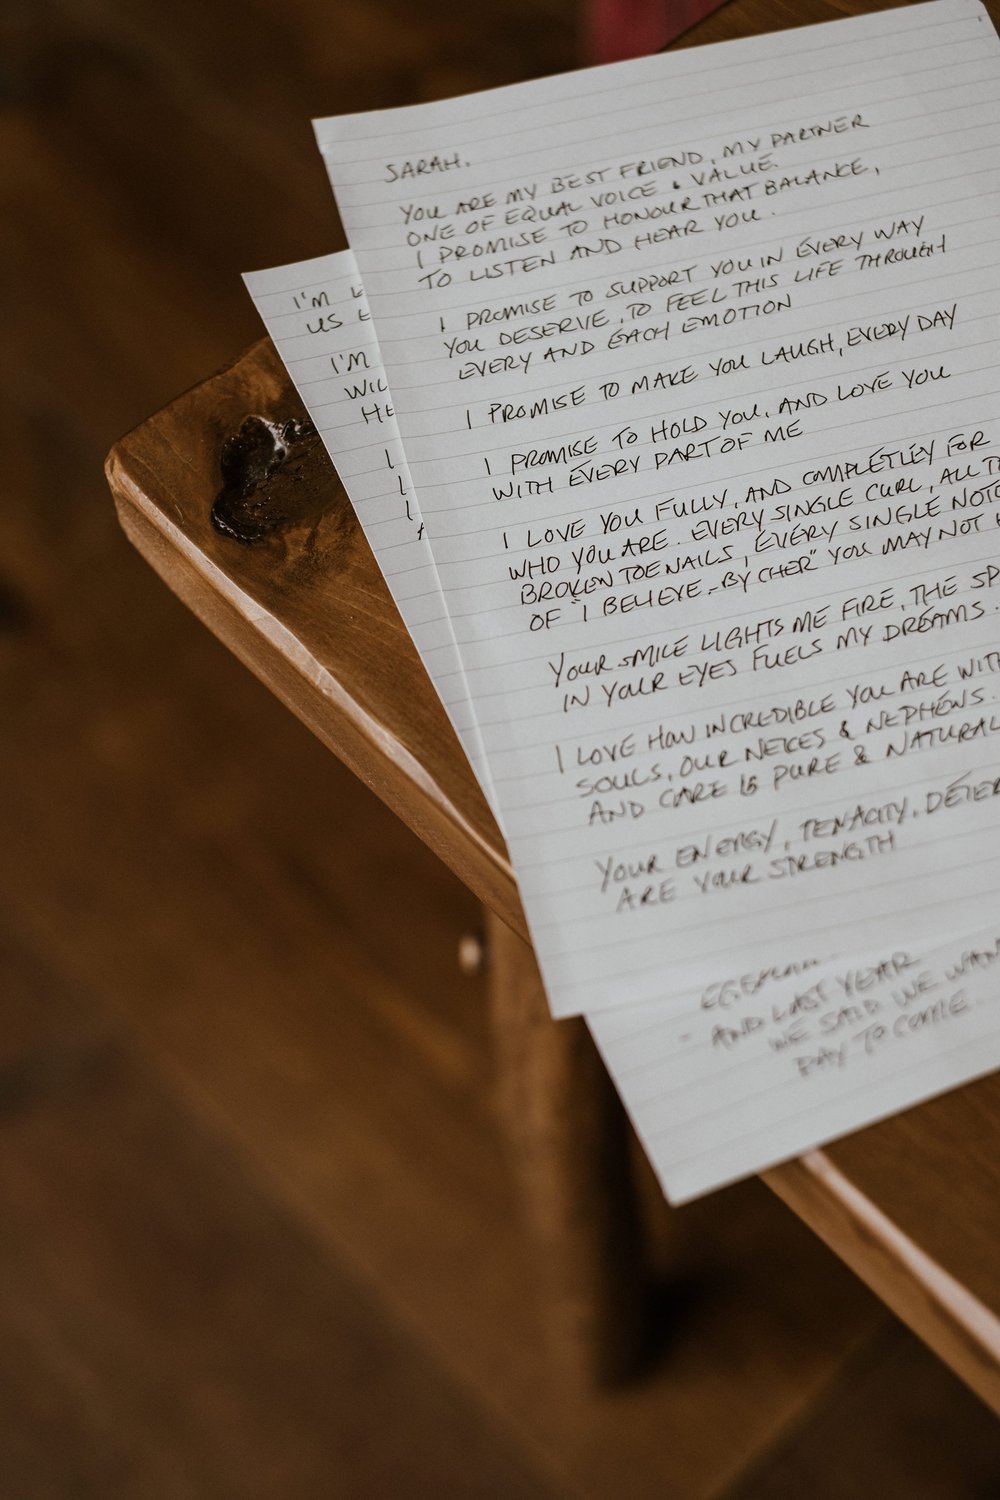 SARAH.
YOU ARE MY BEST FRIEND, MY PARTNER
ONE OF EQUAL VOICE & VALUE.
I PROMISE TO HONOUR THAT BALANCE,
TO LISTEN AND HEAR YOU.
I PROMISE TO SUPPORT YOU IN EVERY WAY
YOU DESERVE, TO FEEL THIS LIFE THROUGH
EVERY AND EACH EMOTION
I PROMISE TO MAKE YOU LAUGH, EVERY DAY
I PROMISE TO HOLD YOU, AND LOVE YOU
WITH EVERY PART OF ME
I LOVE YOU FULLY, AND COMPLETLEY FOR
WHO YOU ARE. EVERY SINGLE CURL, ALL
BROKEN TOENAILS, EVERY SINGLE
OF "I BELIEVE - BY CHER" YOU MAY NOT
YOUR SMILE LIGHTS ME FIRE, THE SP
IN YOUR EYES FUELS MY DREAMS.
I LOVE HOW INCREDIBLE YOU ARE WITH
SOULS, OUR NEICES & NEPHEWS.
AND CARE IS PURE & NATURAL
YOUR ENERGY, TENACITY, DETER
ARE YOUR STRENGTH
I'M
US
I'M
WIL
HE
I
I
I
- AND LAST YEAR
WE SAID WE WAN
DAY TO COME